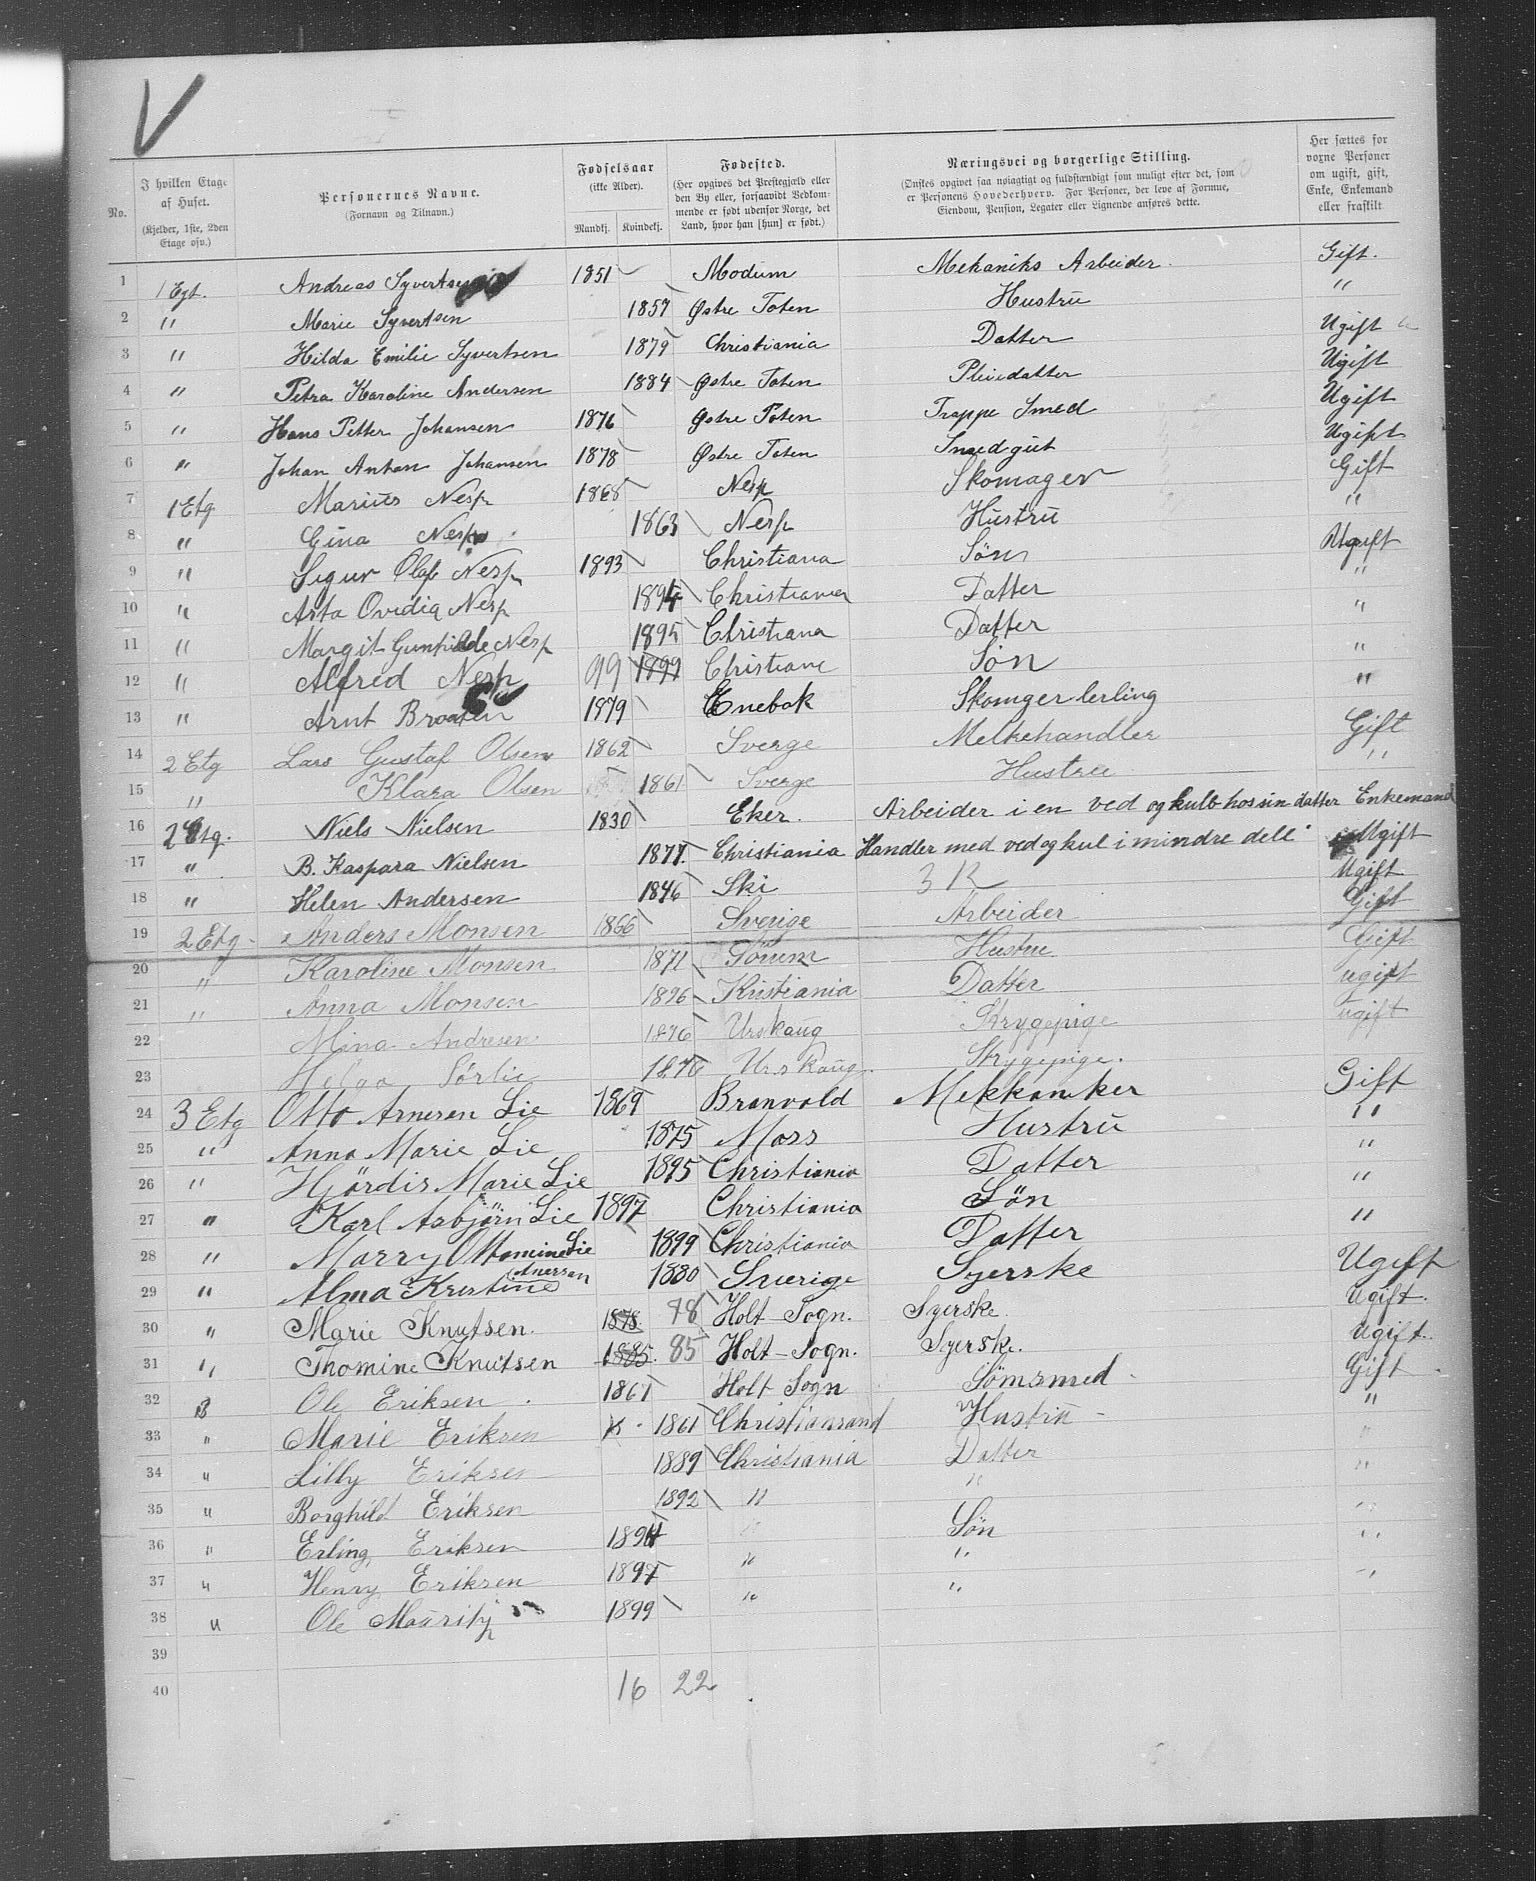 V
No.
I hvilken Etage af Huset. (Kjelder, 1ste, 2den Etage osv.)
Personernes Navne. (Fornavn og Tilnavn.)
Fødselsaar (ikke Alder). Mandkj. Kvindekj.
Fødested. (Her opgives det Prestegjæld eller den By eller, forsaavidt Vedkommende er født udenfor Norge, det Land, hvor han [hun] er født.)
Næringsvei og borgerlige Stilling. (Ønskes opgivet saa nøiagtigt og fuldstændigt som muligt efter det, som er Personens Hovederhverv. For Personer, der leve af Formue, Eiendom, Pension, Legater eller Lignende anføres dette.
Her sættes for voxne Personer om ugift, gift, Enke, Enkemand eller fraskilt
1 1 Egt. Andreas Syvertsen 1851 Modum Mekaniks Arbeider. Gift.
2 " Marie Syvertsen 1857 Østre Toten Hustru "
3 " Hilda Emilie Syvertsen 1879 Christiania Datter Ugift
4 " Petra Karoline Andersen 1884 Østre Toten Pleiedatter Ugift
5 " Hans Petter Johansen 1876 Østre Toten Trappe Smed Ugift
6 " Johan Anton Johansen 1878 Østre Toten Smedgut Ugift
7 1 Etg Marius Nesp 1868 Nesp Skomager Gift
8 " Gina Nesp 1863 Nesp Hustru "
9 " Sigur Olaf Nesp 1893 Christiana Søn Ugift
10 " Asta Ovidia Nesp 1894 Christiania Datter "
11 " Margit Gunhilde Nesp 1895 Christiana Datter "
12 " Alfred Nesp 99 1899 Christiane Søn "
13 " Arnt Braaten 1879 Enebak Skomger lerling "
14 2 Etg Lars Gustaf Olsen 1862 Sverge Melkehandler Gift
15 " Klara Olsen 1861 Sverge Hustru "
16 2 Etg. Niels Nielsen 1830 Eker. Arbeider i en ved og kulb hos sin datter Enkemand
17 " B. Kaspara Nielsen 1877. Christiania Handler med ved og kul i mindre dell Ugift
18 " Helen Andersen 1846 Ski Ugift
19 2 Etg Anders Monsen 1866 Sverige Arbeider Gift
20 " Karoline Monsen 1871 Sørum Hustru Gift
21 " Anna Monsen 1896 Kristiania Datter ugift
22 Mina Andresen 1876 Urskaug Strygepige ugift
23 Helga Sørlie 1876 Urskaug Strygepige.
24 3 Etg Otto Arnesen Lie 1869 Branvold Mekkaniker Gift
25 " Anna Marie Lie 1875 Moss Hustru "
26 " Hjördis Marie Lie 1895 Christiania Datter "
27 " Karl Asbjörn Lie 1897 Christiania Søn "
28 " Marry Ottomine Lie 1899 Christiania Datter "
29 " Alma Kristine Anersen 1880 Sverige Syerske Ugift
30 " Marie Knutsen. 1878 78 Holt Sogn. Syerske. Ugift.
31 " Thomine Knutsen 1885. 85 Holt-Sogn. Syerske. Ugift.
32 3 Ole Eriksen 1861 Holt Sogn Sømsmed Gift
33 " Marie Eriksen 1861 Christiansand Hustru "
34 " Lilly Eriksen 1889 Christiania Datter "
35 " Borghild Eriksen 1892 " " "
36 " Erling Eriksen 1894 " Søn "
37 " Henry Eriksen 1897 " " "
38 " Ole Mauritz 1899 " "
39
40 16 22